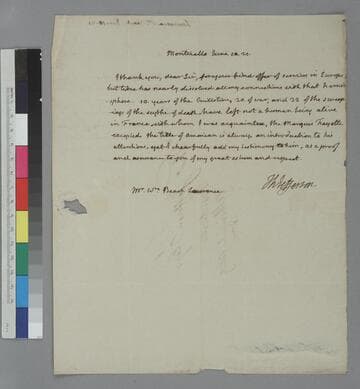 Monticello June
I thank you, dear Sir, for your kind offer of services in Europe
but time has nearly dissolved all my connections with that hemis-
phere. 10. years of the Guillotine, 20. of war, and 22 of the sweep-
ings of the scythe of death, have left not a human being alive
in France with whom I was acquainted, the Marquis Fayette
excepted. the title of American is always an introduction to his
attentions, yet I chearfully add my testimony to him, as a proof
and assurance to you of my great esteem and respect.
Th: Jefferson
Mr. Wm. Beach Lawrence